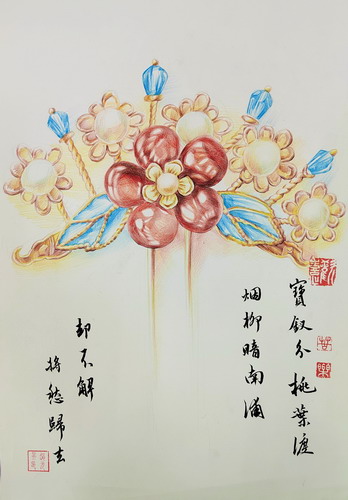 寶釵分桃葉渡
烟柳暗南浦
却不解
將愁歸去